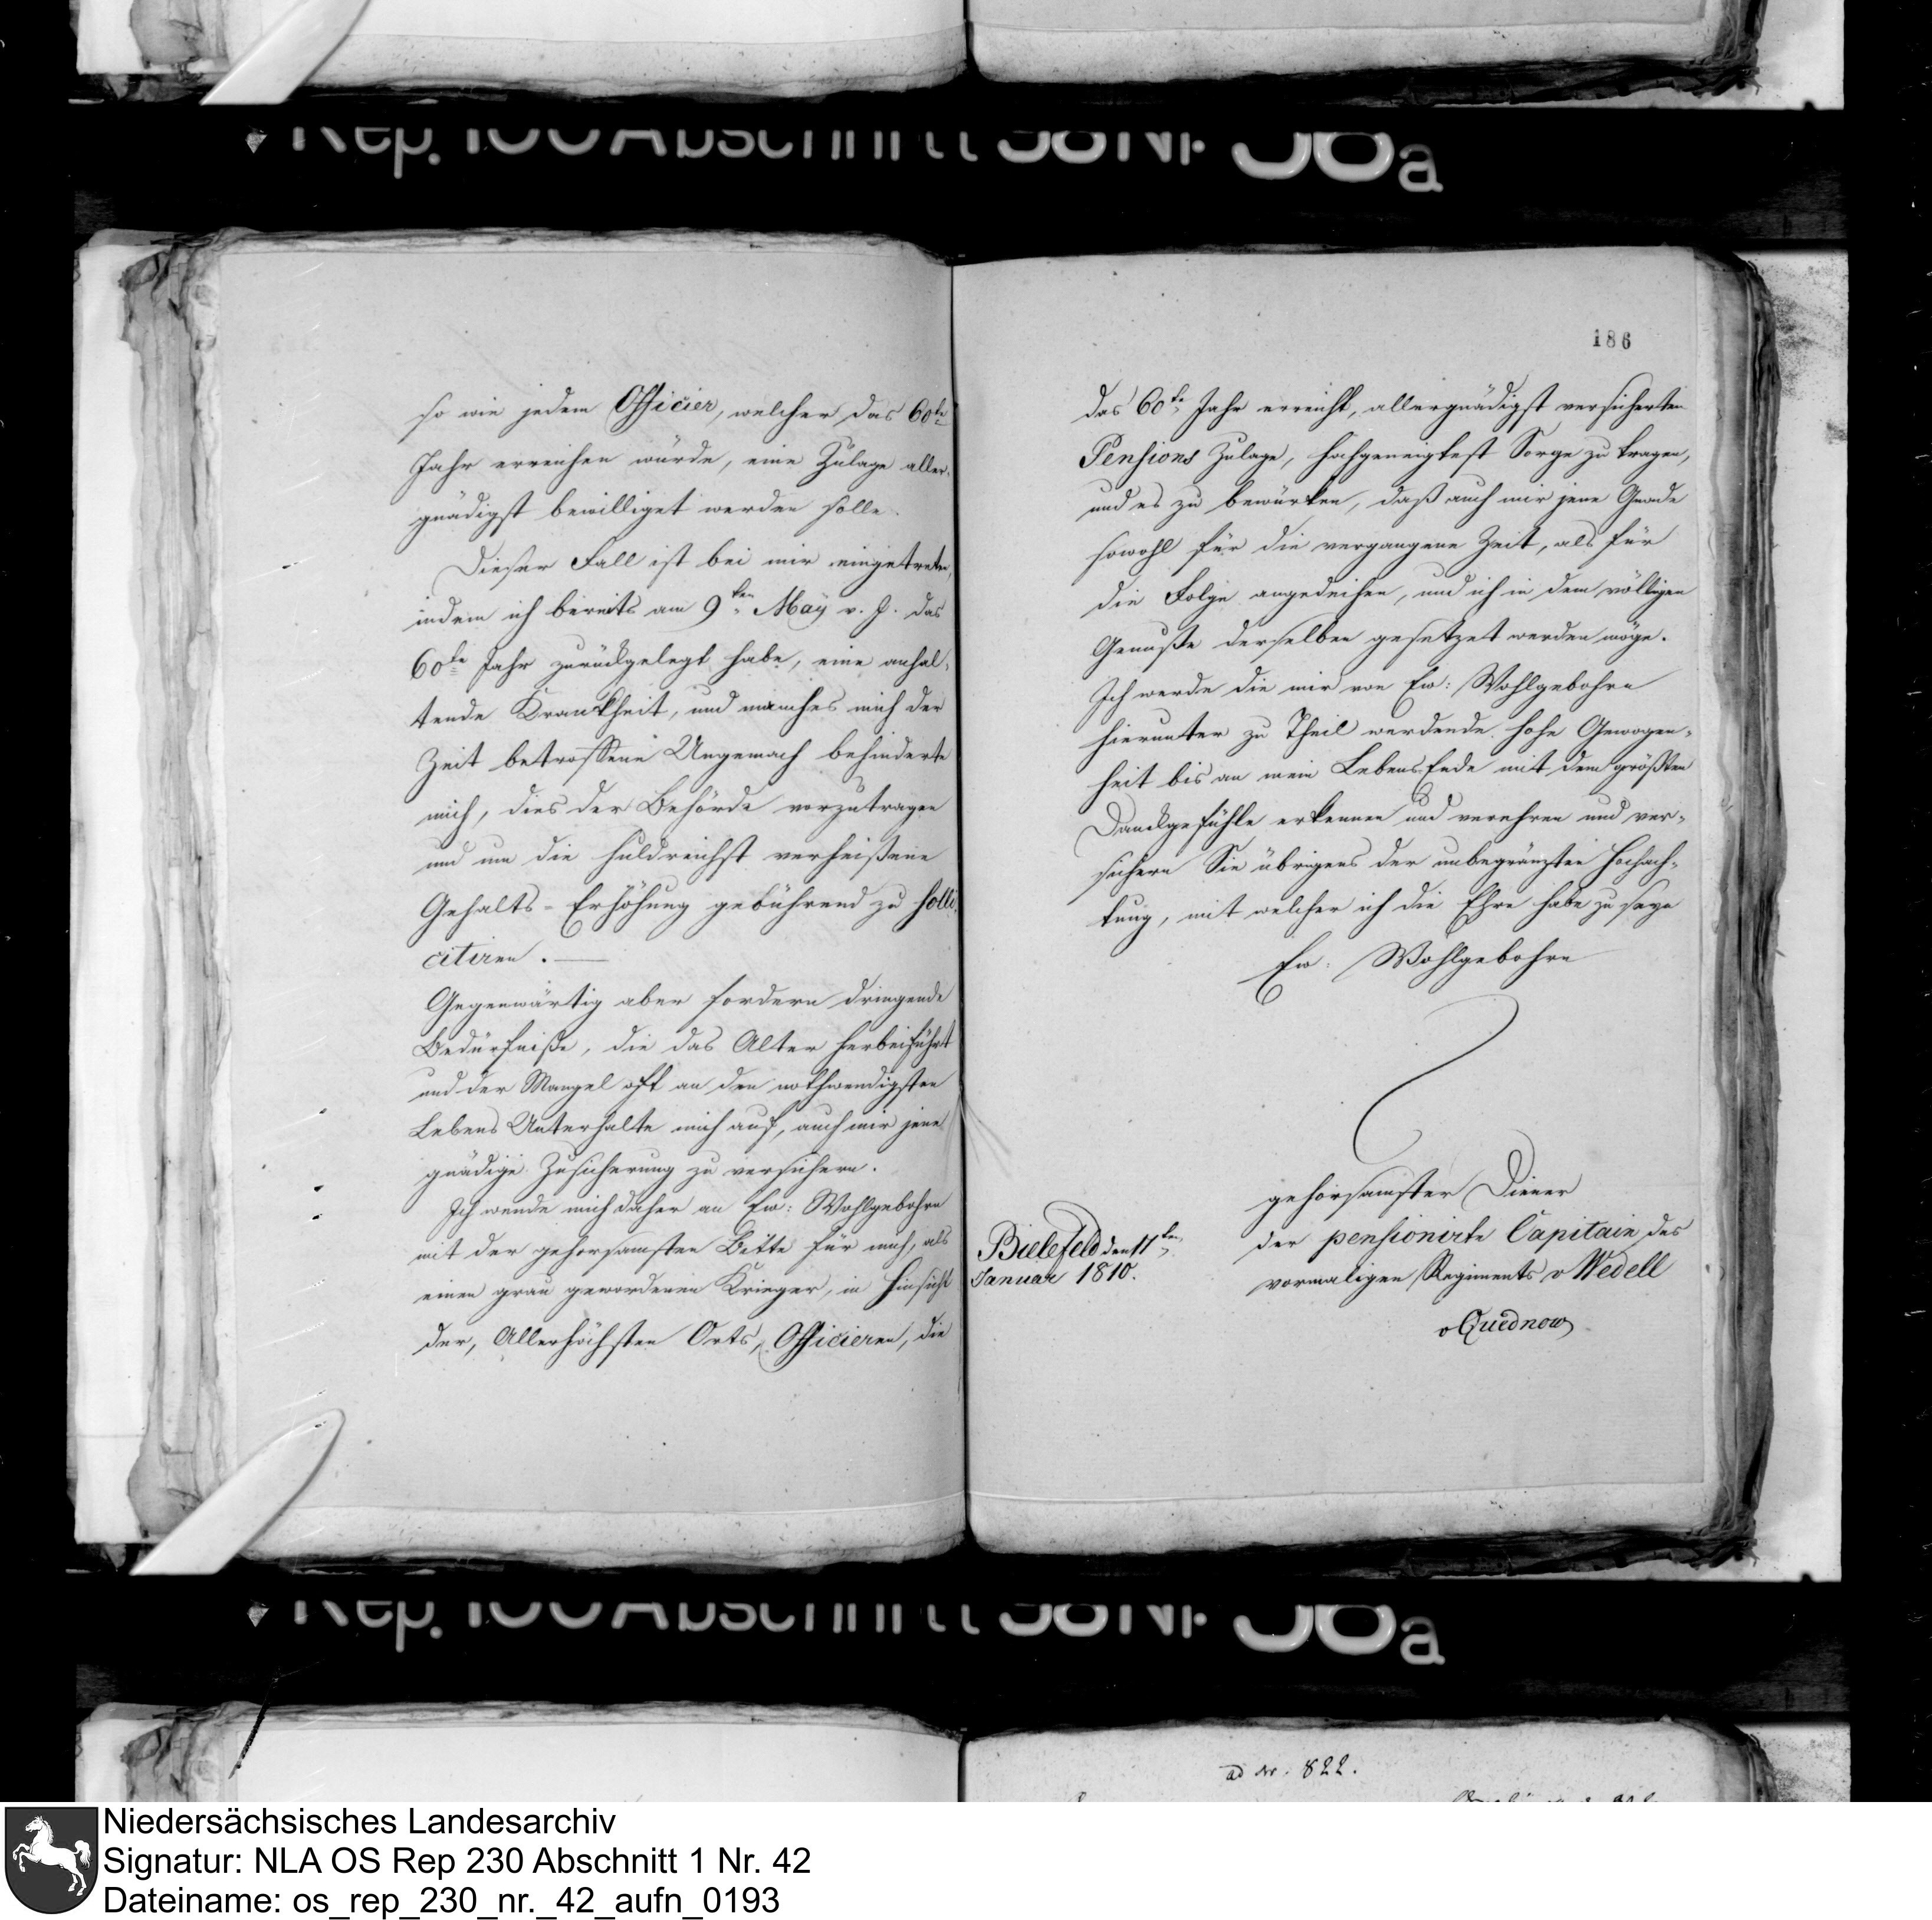 Rep. 100 Abschnitt 58 Nr. 36a
so wie jedem Officier, welcher das 60te
Jahr erreichen würde, eine Zulage aller-
gnädigst bewilliget werden solle.
Dieser Fall ist bei mir eingetreten,
indem ich bereits am 9ten May v. J. das
60te Jahr zurückgelegt habe, eine anhal-
tende Krankheit, und manches mich der
Zeit betroffene Ungemach behinderte
mich, dies der Behörde vorzutragen
und um die huldreichst verheißene
Gehalts-Erhöhung gebührend zu solli-
citiren.
Gegenwärtig aber fordern dringende
Bedürfniße, die das Alter herbeiführt
und der Mangel oft an den nothwendigsten
Lebens Unterhalte mich auf, auch mir jene
gnädige Zusicherung zu versichern.
Ich wende mich daher an Ew: Wohlgebohrn
mit der gehorsamsten Bitte für mich, als
einen grau gewordenen Krieger, in Hinsicht
der, Allerhöchsten Orts, Officieren, die
186
das 60te Jahr erreicht, allergnädigst versicherten
Pensions Zulage, hochgeneigtest Sorge zu tragen,
und es zu bewürken, daß auch mir jene Gnade
sowohl für die vergangene Zeit, als für
die Folge angedeihen, und ich in dem völligen
Genuße derselben gesetzet werden möge.
Ich werde die mir von Ew: Wohlgebohrn
hierunter zu Theil werdende hohe Gewogen-
heit bis an mein Lebens Ende mit dem größten
Dankgefühle erkennen und verehren und ver-
sichern Sie übrigens der unbegränzten Hochach-
tung, mit welcher ich die Ehre habe zu seyn
Ew. Wohlgebohrn
gehorsamster Diener
der pensionirte Capitain des
vormaligen Regiments v Wedell
v Quednow
Bielefeld den 11ten
Januar 1810.
Rep. 100 Abschnitt 58 Nr. 36a
ad Nr. 822.
Niedersächsisches Landesarchiv
Signatur: NLA OS Rep 230 Abschnitt 1 Nr. 42
Dateiname: os_rep_230_nr._42_aufn_0193